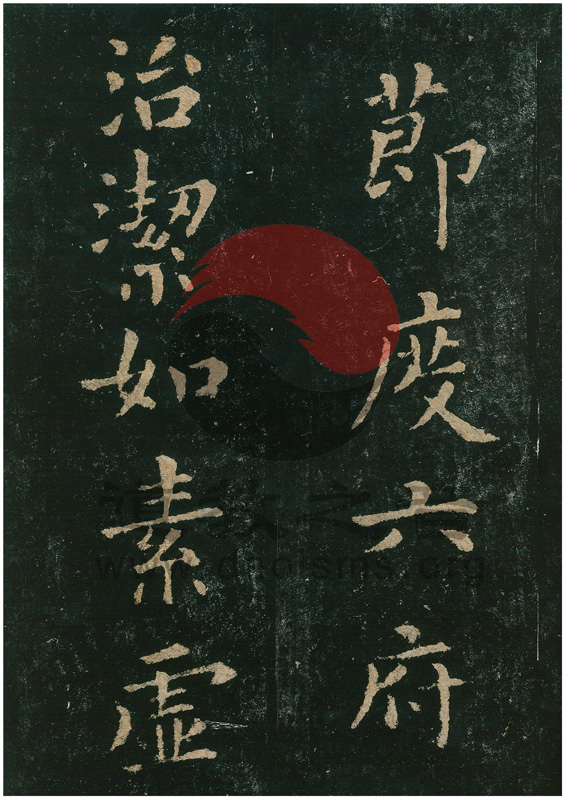 節度六府
治潔如素虛
道教之音
www.daoisms.org